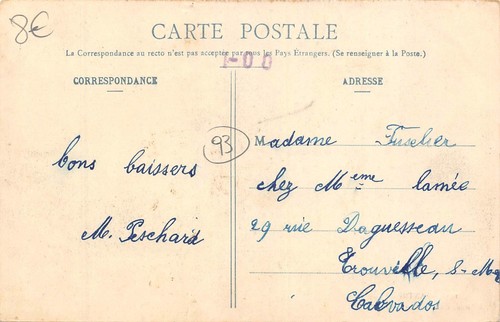 8€
CARTE POSTALE
La Correspondance au recto n'est pas acceptée par tous les Pays Etrangers. (Se renseigner à la Poste.)
1-00
CORRESPONDANCE
ADRESSE
93
bons baissers
M. Peschard
Madame Fuscher
chez Meme lamée
29 rue Daguesseau
Trouville, s-Mer
Calvados